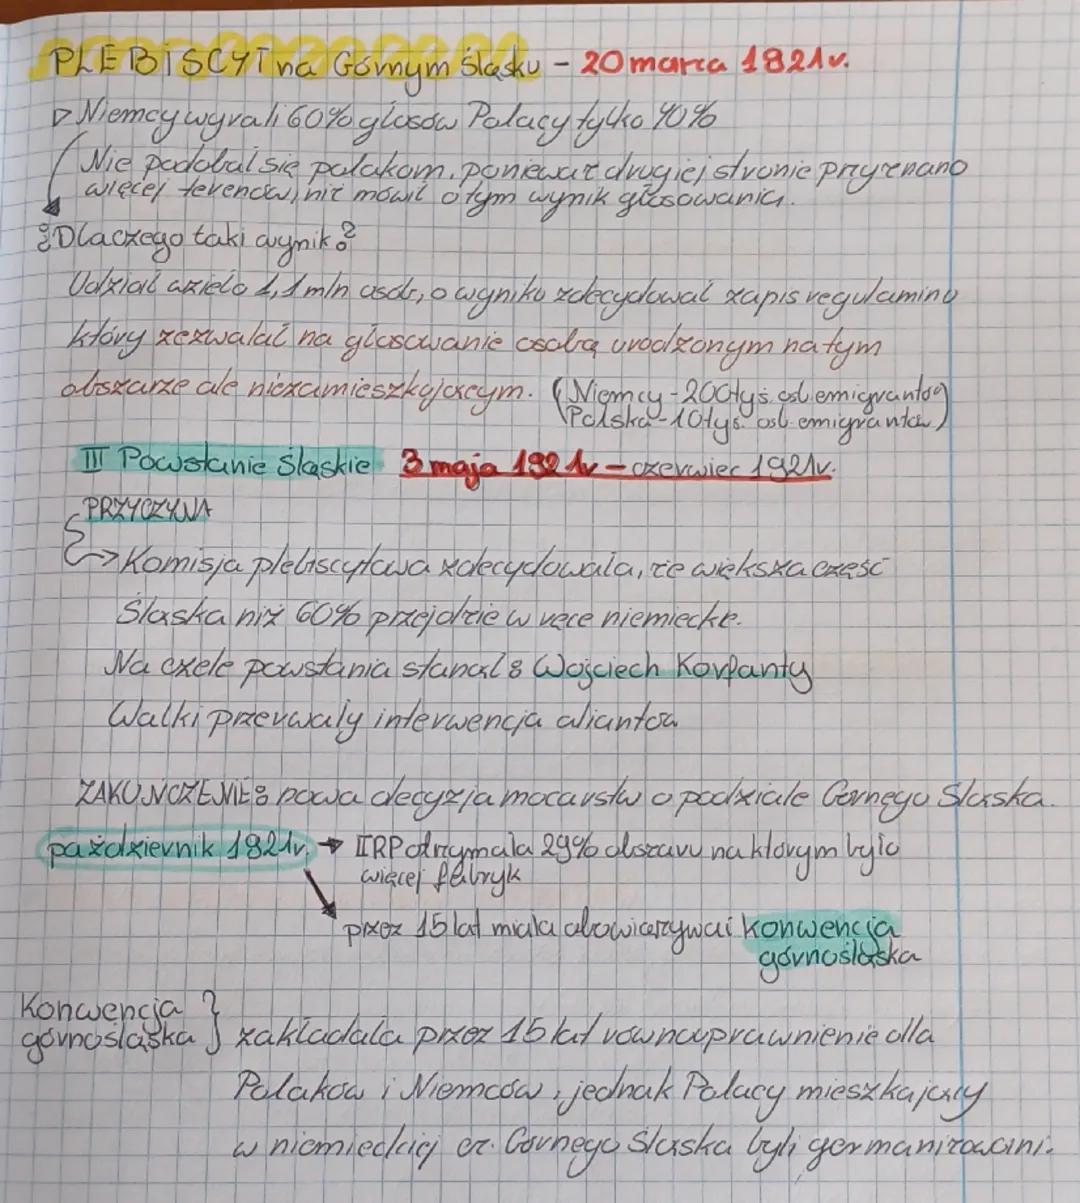 PLEBiSCYT na Górnym Śląsku - 20 marca 1921r.
▷ Niemcy wygrali 60% głosów Polacy tylko 40%
Nie podobał się polakom, ponieważ drugiej stronie przyznano
więcej terenów, niż mówił o tym wynik głosowania.
¿Dlaczego taki wynik?
Udział wzięło 1,1 mln osób, o wyniku zdecydował zapis regulaminu
który zezwalał na głosowanie osobą urodzonym na tym
obszarze ale niezamieszkującym. (Niemcy - 200tyś. osb. emigrantów
Polska - 10tyś. osb. emigrantów)
III Powstanie Śląskie 3 maja 1921r - czerwiec 1921r.
PRZYCZYNA
→ Komisja plebiscytowa zdecydowała, że większa część
Śląska niż 60% przejdzie w ręce niemieckie.
Na czele powstania stanął: Wojciech Korfanty
Walki przerwały interwencja aliantów
ZAKOŃCZENIE: nowa decyzja mocarstw o podziale Górnego Śląska.
październik 1921r. → IIRP otrzymała 29% obszaru na którym było
więcej fabryk
przez 15 lat miała obowiązywać konwencja
górnośląska
Konwencja
górnośląska } zakładała przez 15 lat równouprawnienie dla
Polaków i Niemców, jednak Polacy mieszkający
w niemieckiej cz. Górnego Śląska byli germanizowani.